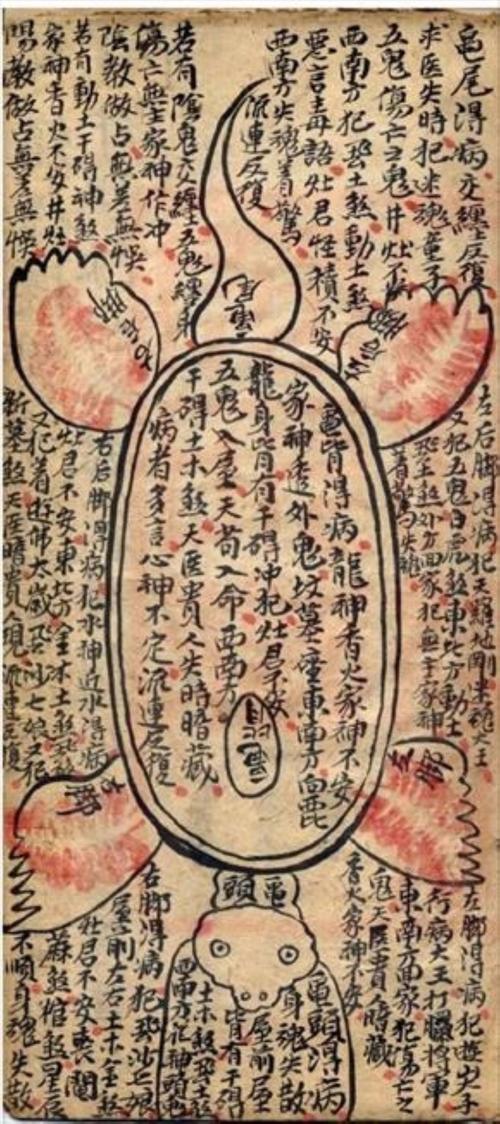 龜尾得病交纏反復
求医失時犯迷魂童子
五鬼傷亡之鬼井灶不安
西南方犯恐土煞動土煞
惡言毒語灶君怪積不安
西南方失魂着驚
流連反復
若有陰鬼交纏五鬼纏身
傷亡無主家神作冲
陰教做占無差無悞
若有動土干碍神煞
家神香火不安井灶
陽教做占無差無悞
龜尾
右后脚
左后脚
左后脚得病犯天羅地网迷魂天王
又犯五鬼白虎煞東北方動土
恐土煞外方回家犯無主家神
着驚失魂
龜背得病龍神香火家神不安
家神透外鬼坟墓座東南方向
龍身背有干碍冲犯灶君不安
五鬼入屋天苟入命西西方
干碍土木煞天医貴人失時暗藏
病者多言心神不定流連反復
龜背
右后脚得病犯水神近水得病
灶君不安東北方金木土煞
又犯着遊師太歲恐沙七娘又犯
新墓煞天医暗貴人現流連反復
右脚
左脚
左脚得病犯遊火子
行病大王打獵将軍
東南方回家犯傷亡之
鬼天医貴人暗藏
香火家神不安
龜頭
龜頭得病
身魂失散
屋前屋
背有干碍
土木煞恐土煞
西南方犯神頭
右脚得病犯恐沙七娘
屋前左右土木金煞
灶君不安喪門
麻煞棺煞星辰
不順身魂失散